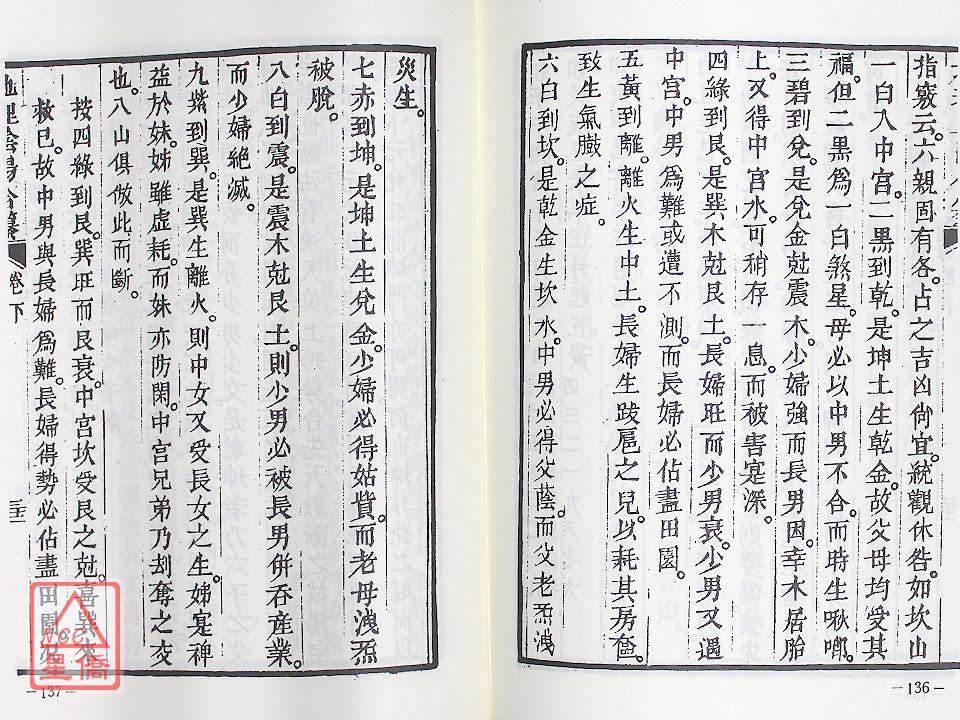 指竅云。六親固有各。占之吉凶尙宜。統觀休咎。如坎山
一白入中宮。二黑到乾。是坤土生乾金。故父母均受其
福。但二黑爲一白煞星。母必以中男不合。而時生啾唧。
三碧到兌。是兌金尅震木。小婦強而長男因。幸木居胎
上。又得中宮水。可稍存一息。而被害寔深。
四綠到艮。是巽木尅艮土。長婦旺而少男衰。少男又遇
中宮。中男爲難。或遭不測。而長婦必佔盡田園。
五黃到離。離火生中土。長婦生跋扈之兒。以耗其房奩。
致生氣臌之症。
六白到坎。是乾金生坎水。中男必得父蔭。而父老炁洩
—136—
災生。
七赤到坤。是坤土生兌金。少婦必得姑貲。而老母洩炁
被脫。
八白到震。是震木尅艮土。則少男必被長男併吞產業。
而少婦絶滅。
九紫到巽。是巽生離火。則中女又受長女之生。姊寔禆
益於妹。姊雖虛耗。而妹亦防閑。中宮兄弟乃刦奪之交
也。八山俱倣此而斷。
按四綠到艮。巽旺而艮衰。中宮坎受艮之尅。喜巽交
救巳。故中男與長婦爲難。長婦得勢必佔盡田園。況
地理陰陽合纂
卷下
星僑
NCC
—137—